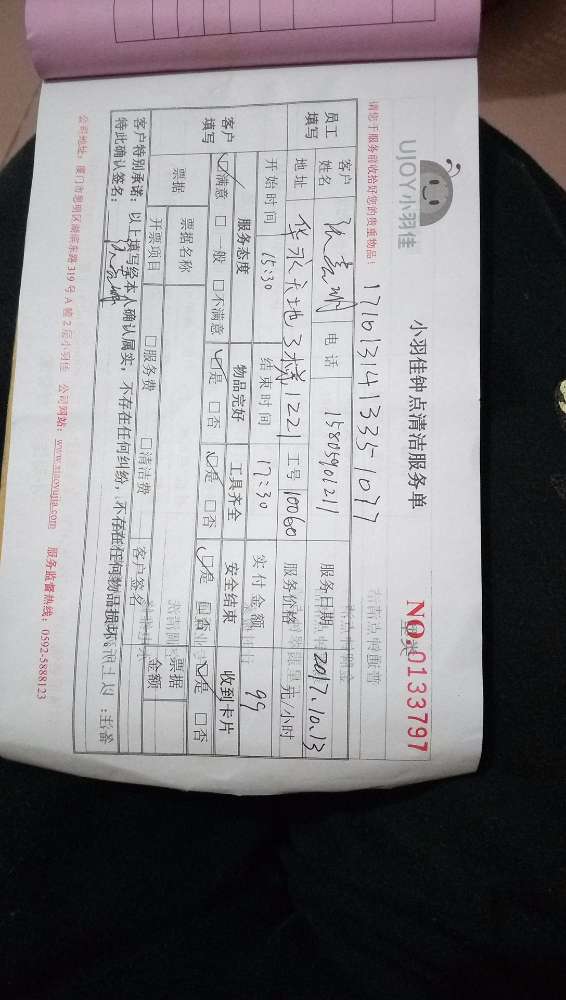 UJOY小羽佳
小羽佳钟点清洁服务单
NO.0133797
请您于服务前收拾好您的贵重物品！
17101314133510 77
员工填写
客户姓名
电话 15805901211
服务日期 2017.10.13
地址 华永天地3栋1221
工号 10060
服务价格 元/小时
开始时间 15:30
结束时间 17:30
实付金额 99
客户填写
服务态度 物品完好 工具齐全 安全结束 收到卡片
☑满意 □一般 □不满意 ☑是 □否 ☑是 □否 ☑是 □否 ☑是 □否
票据 票据名称 票据金额
开票项目 □服务费 □清洁费 客户签名
客户特别承诺：以上填写经本人确认属实，不存在任何纠纷，不存在任何物品损坏。
特此确认签名：
公司地址：厦门市思明区湖滨东路319号A幢2层小羽佳 公司网站：www.xiaoyujia.com 服务监督热线：0592-5888123